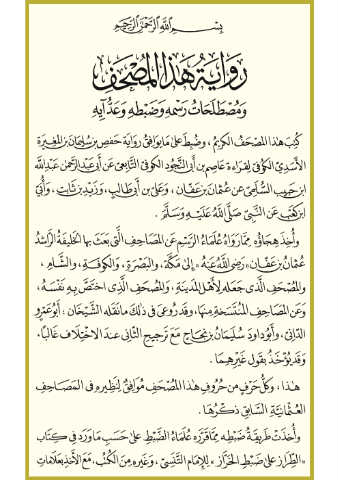 بِسْمِ اللَّهِ الرَّحْمَنِ الرَّحِيمِ
رِوَايَةُ هَذَا المُصْحَفِ
وَمُصْطَلَحَاتُ رَسْمِهِ وَضَبْطِهِ وَعَدُّ آيِهِ
كُتِبَ هَذَا المُصْحَفُ الكَرِيمُ، وَضُبِطَ عَلَى مَا يُوَافِقُ رِوَايَةَ حَفْصِ بنِ سُلَيْمَانَ بنِ المُغِيرَةِ
الأَسَدِيِّ الكُوفِيِّ لِقِرَاءَةِ عَاصِمِ بنِ أَبِي النَّجُودِ الكُوفِيِّ التَّابِعِيِّ عَنْ أَبِي عَبْدِ الرَّحْمَنِ عَبْدِ اللَّهِ
ابنِ حَبِيبٍ السُّلَمِيِّ عَنْ عُثْمَانَ بنِ عَفَّانَ، وَعَلِيِّ بنِ أَبِي طَالِبٍ، وَزَيْدِ بنِ ثَابِتٍ، وَأُبَيِّ
ابنِ كَعْبٍ عَنِ النَّبِيِّ صَلَّى اللَّهُ عَلَيْهِ وَسَلَّمَ.
وَأُخِذَ هِجَاؤُهُ مِمَّا رَوَاهُ عُلَمَاءُ الرَّسْمِ عَنِ المَصَاحِفِ الَّتِي بَعَثَ بِهَا الخَلِيفَةُ الرَّاشِدُ
عُثْمَانُ بنُ عَفَّانَ «رَضِيَ اللَّهُ عَنْهُ» إِلَى مَكَّةَ، وَالبَصْرَةِ، وَالكُوفَةِ، وَالشَّامِ،
وَالمُصْحَفِ الَّذِي جَعَلَهُ لِأَهْلِ المَدِينَةِ، وَالمُصْحَفِ الَّذِي اخْتَصَّ بِهِ نَفْسَهُ،
وَعَنِ المَصَاحِفِ المُنْتَسَخَةِ مِنْهَا، وَقَدْ رُوعِيَ فِي ذَلِكَ مَا نَقَلَهُ الشَّيْخَانِ: أَبُو عَمْرٍو
الدَّانِيُّ، وَأَبُو دَاوُدَ سُلَيْمَانُ بنُ نَجَاحٍ مَعَ تَرْجِيحِ الثَّانِي عِنْدَ الاخْتِلَافِ غَالِبًا،
وَقَدْ يُؤْخَذُ بِقَوْلِ غَيْرِهِمَا.
هَذَا: وَكُلُّ حَرْفٍ مِنْ حُرُوفِ هَذَا المُصْحَفِ مُوَافِقٌ لِنَظِيرِهِ فِي المَصَاحِفِ
العُثْمَانِيَّةِ السَّابِقِ ذِكْرُهَا.
وَأُخِذَتْ طَرِيقَةُ ضَبْطِهِ مِمَّا قَرَّرَهُ عُلَمَاءُ الضَّبْطِ عَلَى حَسَبِ مَا وَرَدَ فِي كِتَابِ
«الطِّرَازِ عَلَى ضَبْطِ الخَرَّازِ» لِلإِمَامِ التَّنَسِيِّ، وَغَيْرِهِ مِنَ الكُتُبِ، مَعَ الأَخْذِ بِعَلَامَاتِ